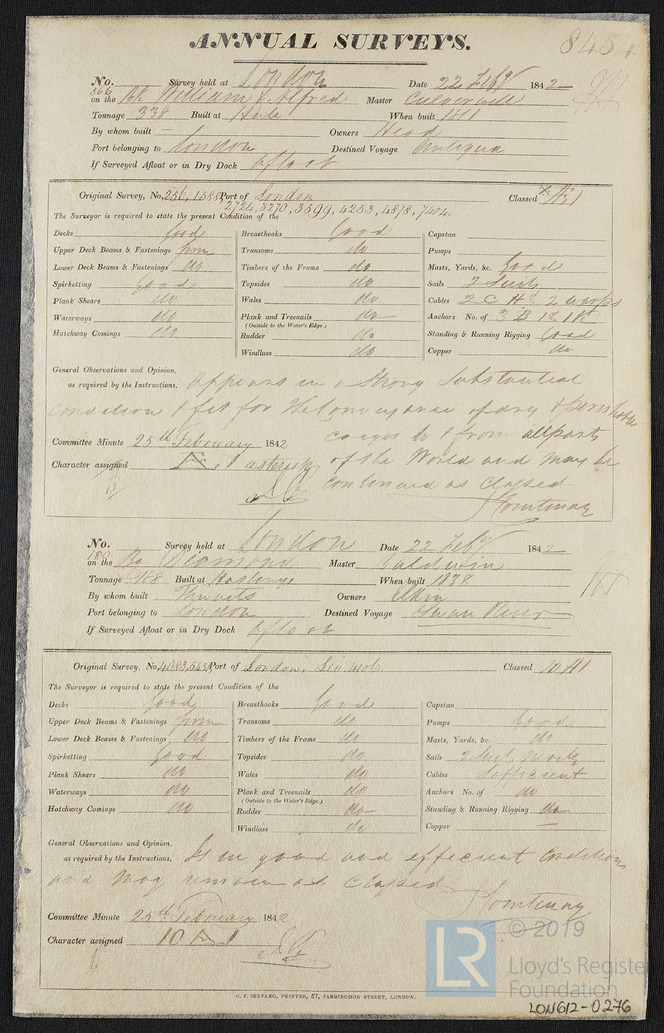 ANNUAL SURVEYS.
8454
No. 366 Survey held at London Date 22 Feby 1842
on the Bk William & Alfred Master Culverwell
Tonnage 338 Built at Hull When built 1811
By whom built — Owners Head
Port belonging to London Destined Voyage Antigua
If Surveyed Afloat or in Dry Dock afloat
Original Survey, No. 256, 1588 Port of London Classed Æ1
2724, 3270, 3599, 4253, 4878, 7404.
The Surveyor is required to state the present Condition of the
Decks Good Breasthooks Good Capstan
Upper Deck Beams & Fastenings firm Transoms do Pumps
Lower Deck Beams & Fastenings do Timbers of the Frame do Masts, Yards, &c. Good
Spirketting Good Topsides do Sails 2 Suits
Plank Shears do Wales do Cables 2 C H & 2 warps
Waterways do Plank and Treenails do Anchors No. of 3 B 1 S 1 K
(Outside to the Water's Edge.)
Hatchway Comings do Rudder do Standing & Running Rigging Good
Windlass do Copper do
General Observations and Opinion,
as required by the Instructions, Appears in a Strong Substantial
condition & fit for the Conveyance of dry & perishable
cargoes to & from all parts
of the World and may be
Continued as Classed
Courtenay
Committee Minute 25th February 1842
Character assigned Æ 1 asterisk
No. 180 Survey held at London Date 22 Feby 1842
on the Bg Diamond Master
Tonnage 188 Built at Hastings When built 1838
By whom built Owners
Port belonging to London Destined Voyage Swan River
If Surveyed Afloat or in Dry Dock afloat
Original Survey, No. 4083, Port of London, Classed 10 A1
The Surveyor is required to state the present Condition of the
Decks Good Breasthooks Good Capstan
Upper Deck Beams & Fastenings firm Transoms do Pumps Good
Lower Deck Beams & Fastenings do Timbers of the Frame do Masts, Yards, &c. do
Spirketting Good Topsides do Sails 2 Suits
Plank Shears do Wales do Cables Sufficient
Waterways do Plank and Treenails do Anchors No. of do
(Outside to the Water's Edge.)
Hatchway Comings do Rudder do Standing & Running Rigging do
Windlass do Copper —
General Observations and Opinion,
as required by the Instructions, Is in good and efficient Condition
and may remain as Classed
Courtenay
Committee Minute 25th February 1842
Character assigned 10 A 1
C. F. SEYFANG, PRINTER, 57, FARRINGDON STREET, LONDON.
LR © 2019
Lloyd's Register
Foundation
LON612-0276